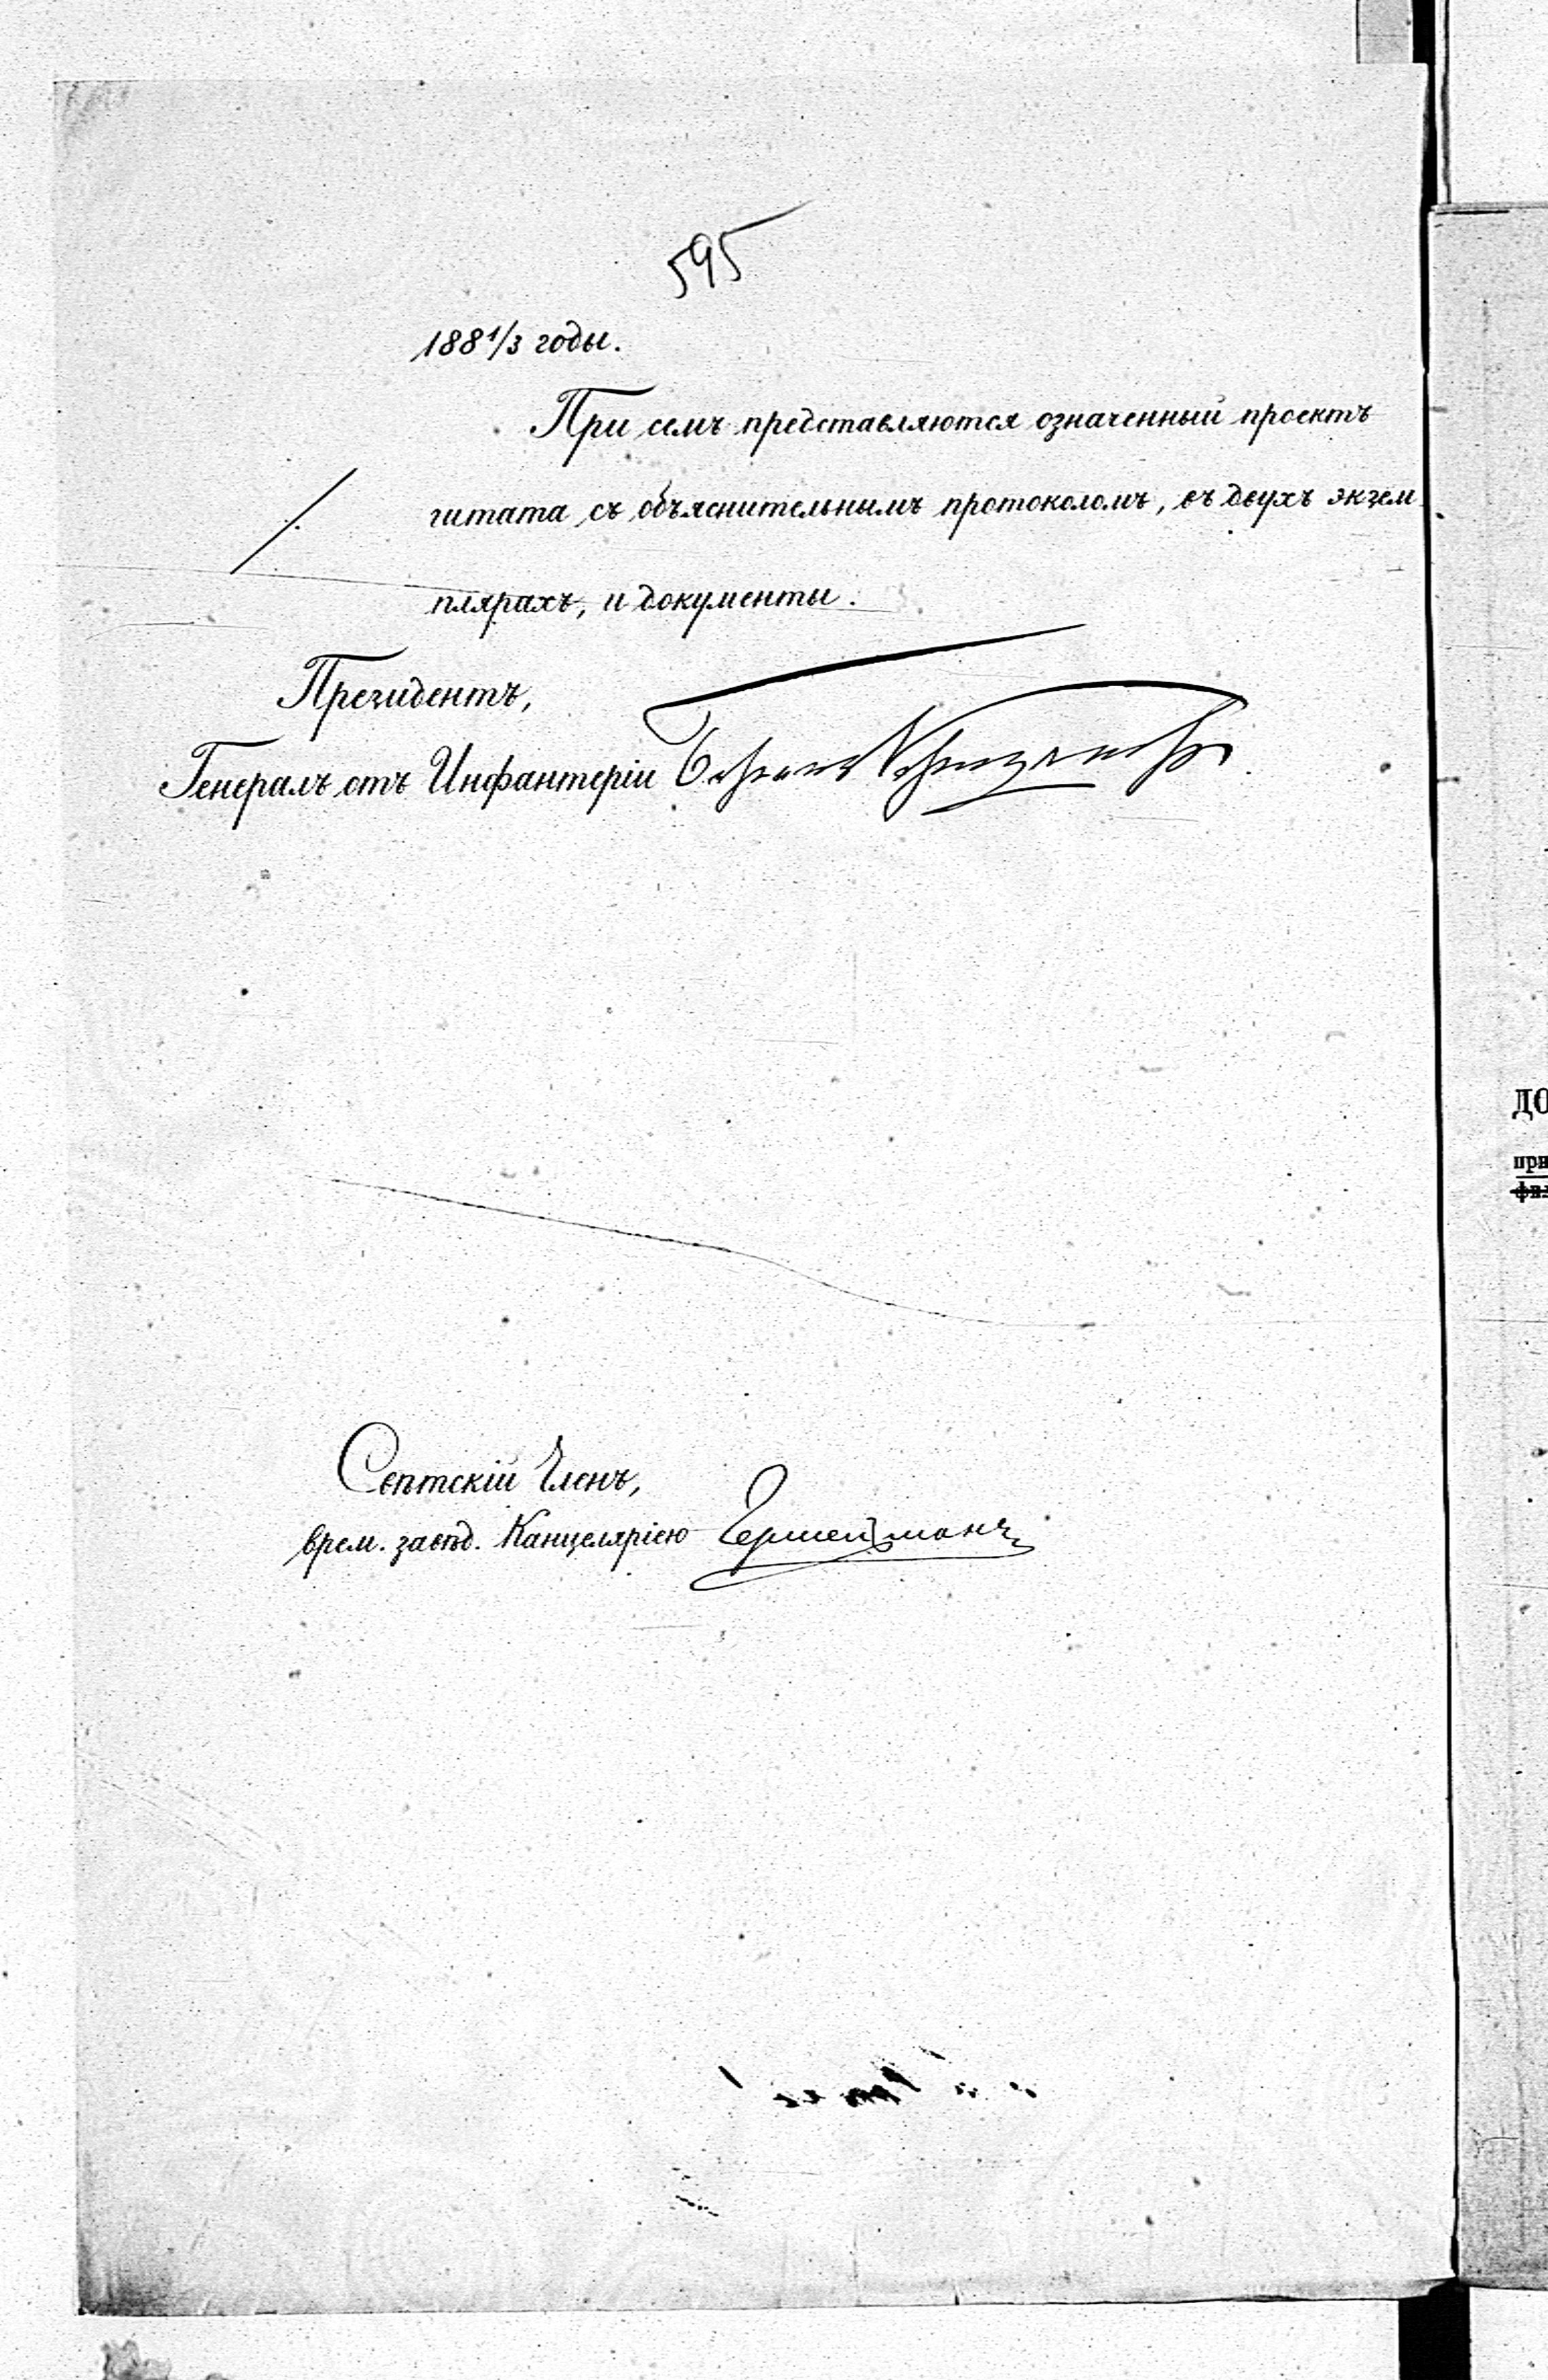 595
1881/3 годы.
При семъ представляются означенный проектъ
штата съ объяснительнымъ протоколомъ, въ двухъ экзем
плярахъ, и документы.
Президентъ,
Генералъ отъ Инфантеріи
Совѣтскій Членъ,
врем. завѣд. Канцеляріею
ДО
при
фил